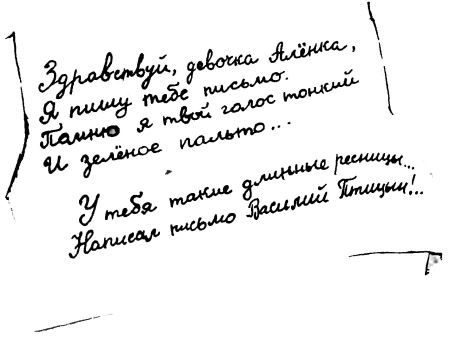 Здравствуй, девочка Алёнка,
Я пишу тебе письмо.
Помню я твой голос тонкий
И зелёное пальто...
У тебя такие длинные ресницы...
Написал письмо Василий Птицын!..